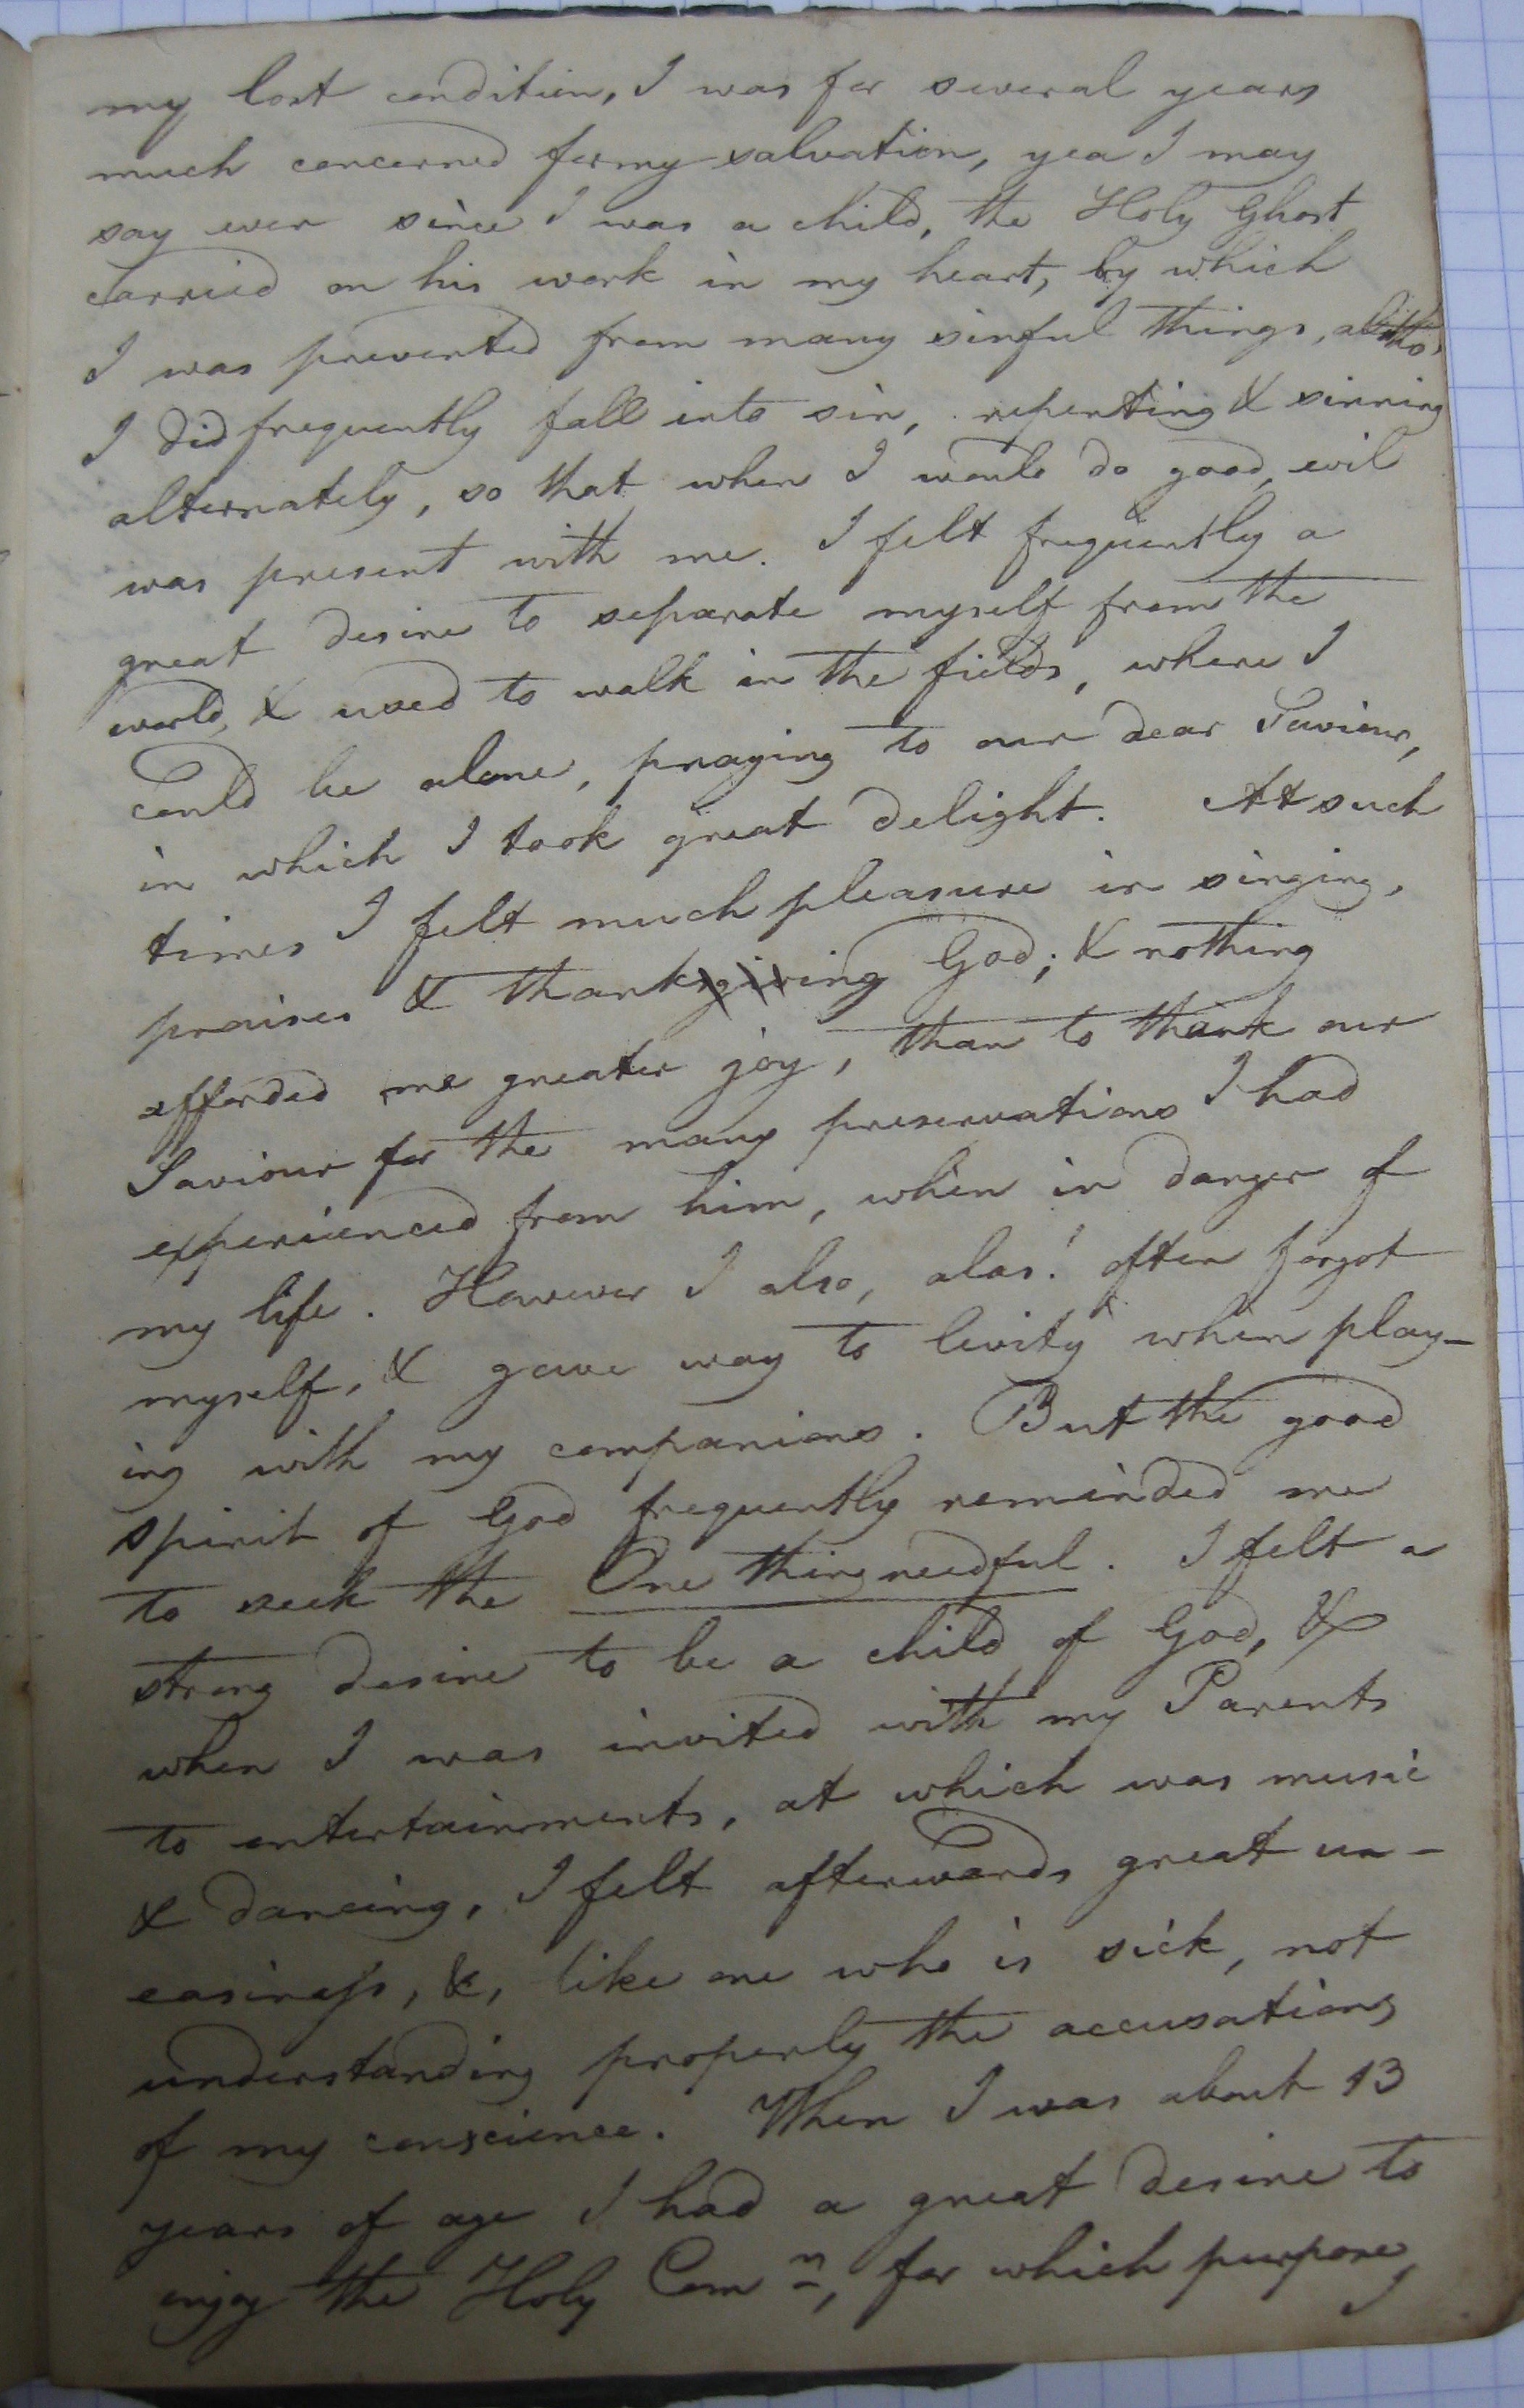 my lost condition, I was for several years
much concerned for my salvation, yea I may
say ever since I was a child, the Holy Ghost
carried on his work in my heart, by which
I was prevented from many sinful things, altho'
I did frequently fall into sin, repenting & sinning
alternately, so that when I would do good, evil
was present with me. I felt frequently a
great desire to separate myself from the
world, & used to walk in the fields, where I
could be alone, praying to our dear Saviour,
in which I took great delight. At such
times I felt much pleasure in singing,
praises & thanksgiving God; & nothing
afforded me greater joy, than to thank our
Saviour for the many preservations I had
experienced from him, when in danger of
my life. However I also, alas! often forgot
myself, & gave way to levity when play-
ing with my companions. But the good
spirit of God frequently reminded me
to seek the One thing needful. I felt a
strong desire to be a child of God, &
when I was invited with my Parents
to entertainments, at which was music
& dancing, I felt afterwards great un-
easiness, &, like one who is sick, not
understanding properly the accusations
of my conscience. When I was about 13
years of age I had a great desire to
enjoy the Holy Comn, for which purpose
I